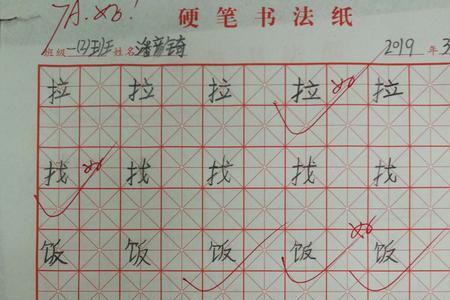 7A.
硬笔书法纸
班级 一(2)班 姓名 2019 年 3
拉 拉 拉 拉 拉
找 找 找 找 找
饭 饭 饭 饭 饭